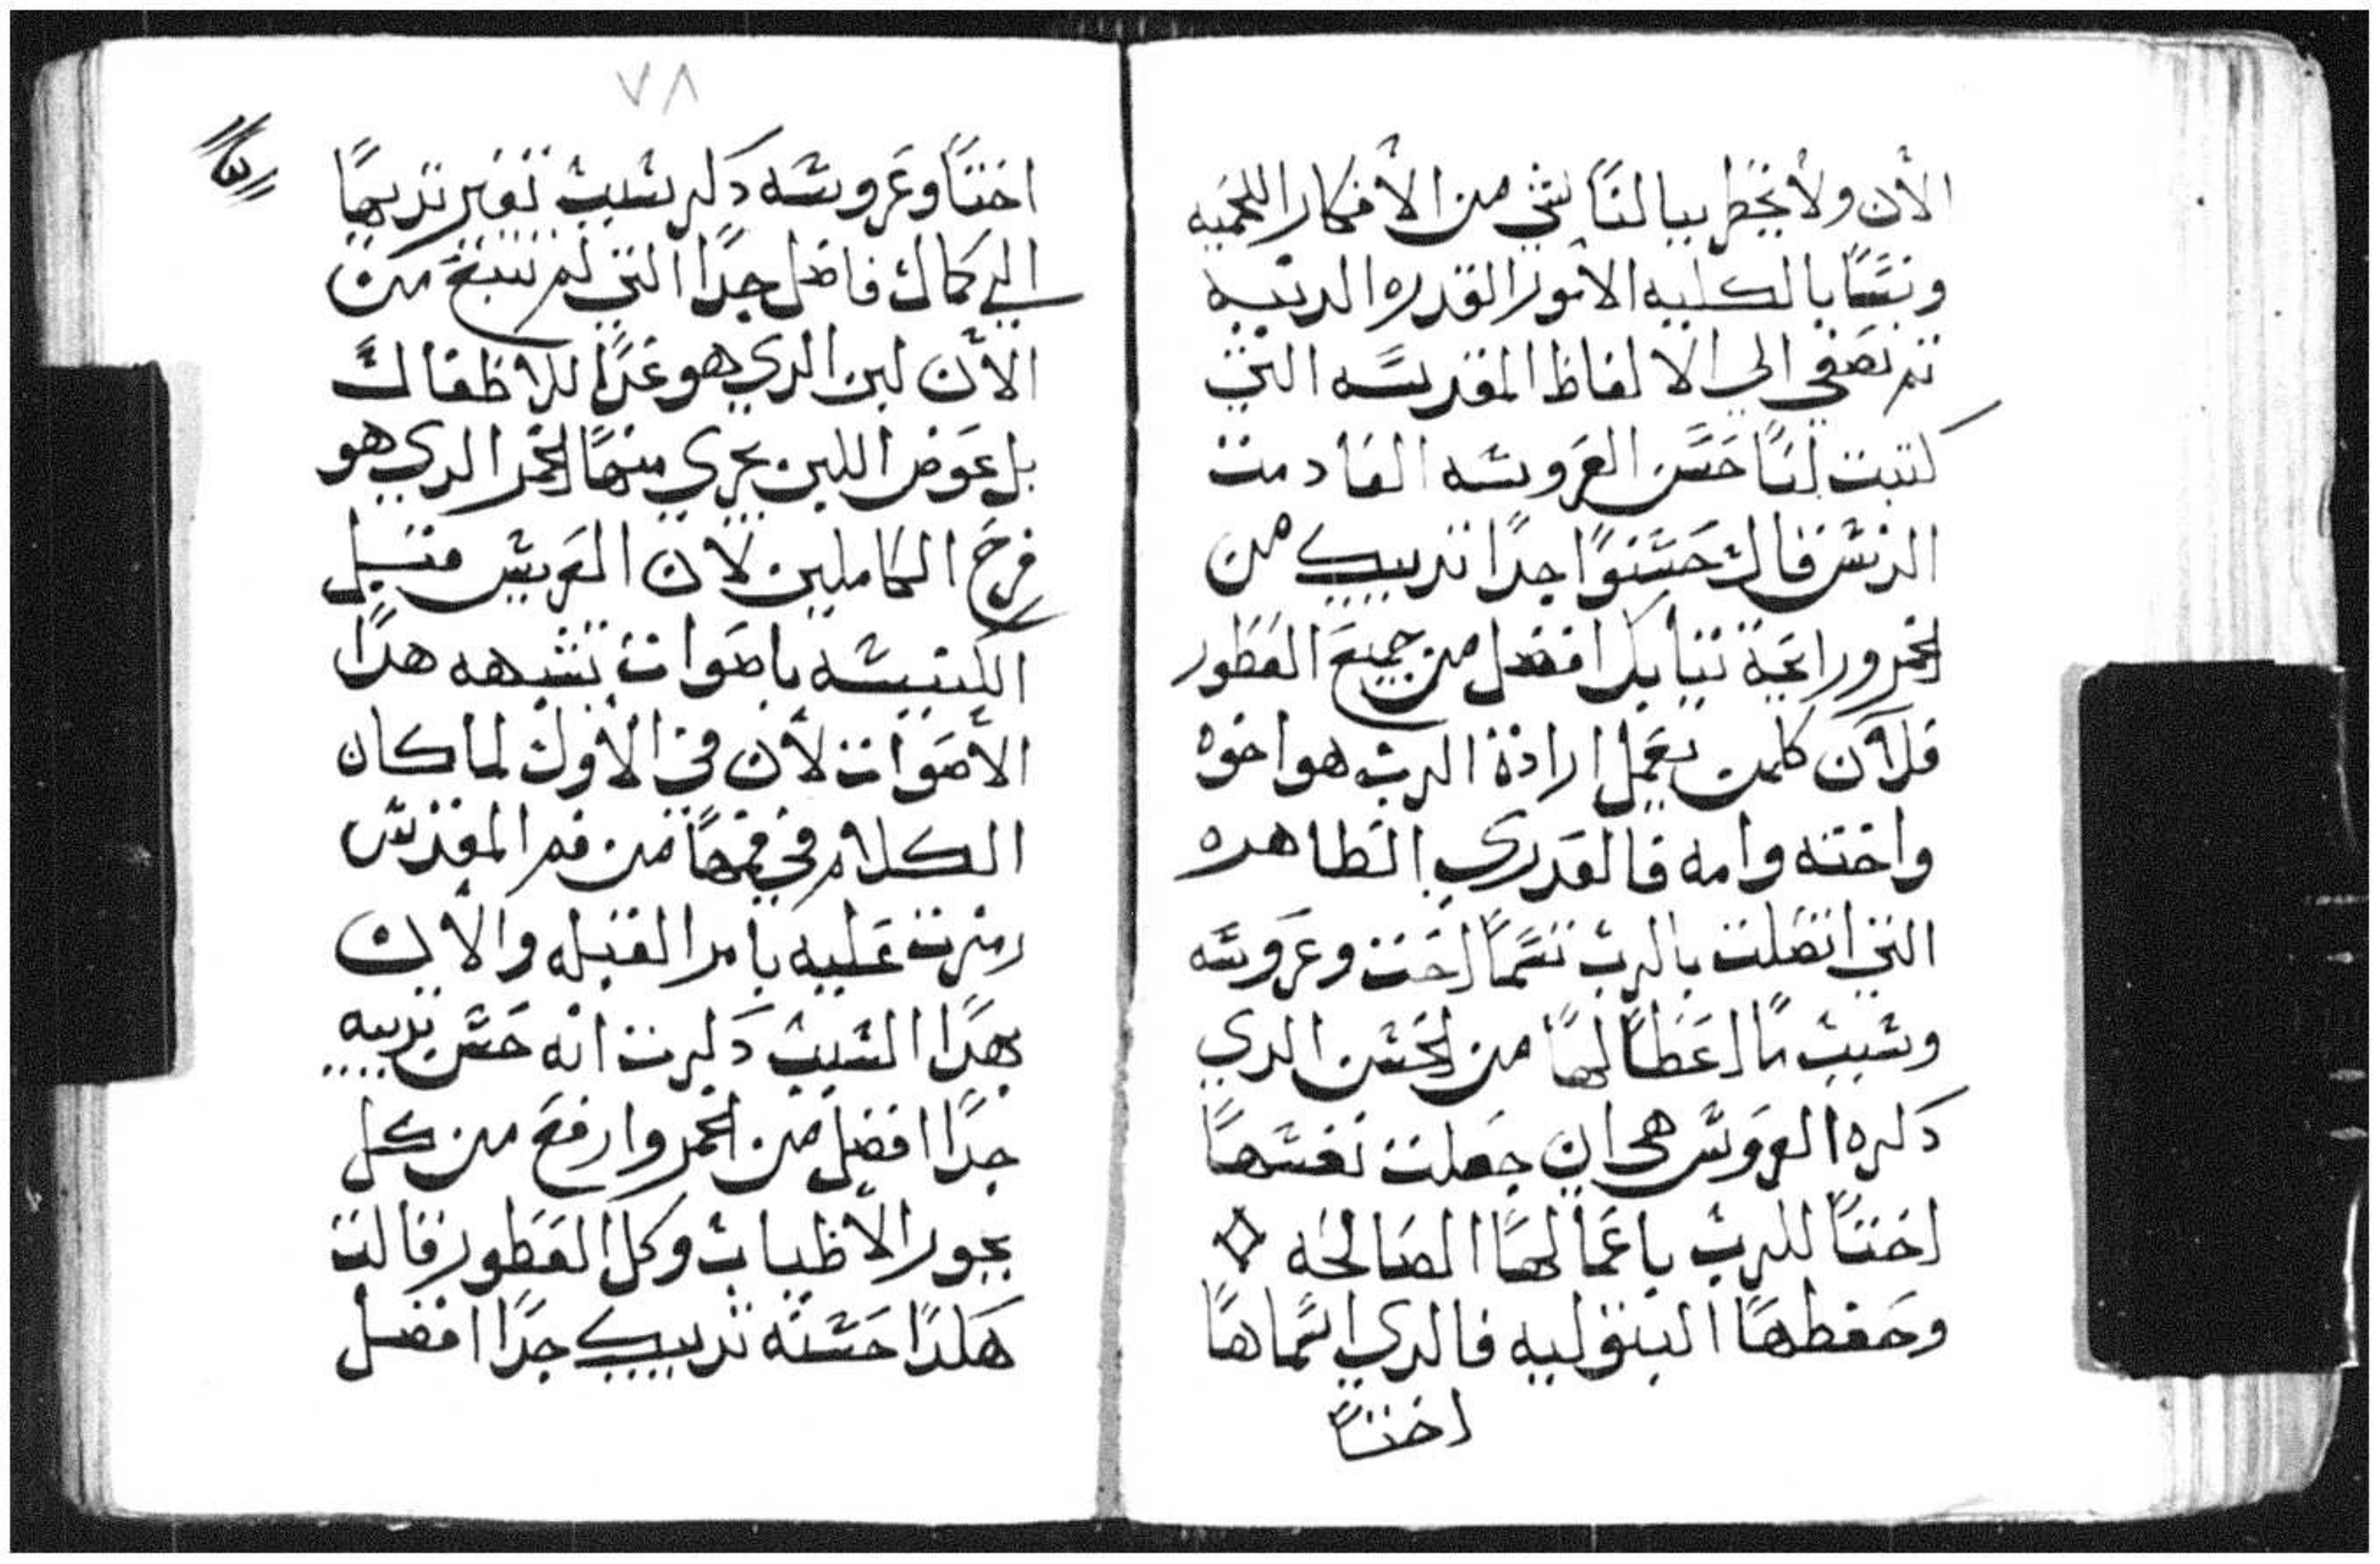 الأن ولا يخطر ببالنا شي من الأفكار اللحميه
وننسا بالكليه الامور القدره الدنيه
تم نصغي الي الالفاظ المقدسه التي
كتبت لنا حسن العروسه القادمت
الدنس فقال حسنوا جدا تدييك من
الخمر ورايحة تيابك افضل من جميع العطور
فلان كلمن يعمل ارادة الرب هو اخوه
واخته وامه فالعدري الطاهره
التي اتصلت بالرب تسما اخت وعروسه
وسبب ما اعطا لها من الحسن الدي
دكره العروس هي ان جعلت نفسها
اختا للرب باعمالها الصالحه
وحفظها البتوليه فالدي اسماها
اختا
٧٨
اختا وعروسه دكر سبب تغير تدييها
الي كمال فاضل جدا التي لم تنبع من
الأن لبن الدي هو غدا للاطفال
بل عوض اللبن يجري منها الخمر الدي هو
فرح الكاملين لان العريس متسل
الكنيسه باصوات تشبهه هدا
الأصوات لأن في الأول لما كان
الكلام في فمها من فم المقدس
رمزت عليه بامر القبله والأن
بهدا السبب دكرت انه حسن تدييه
جدا افضل من الخمر وارفع من كل
بخور الأطياب وكل العطور قالت
هكدا حسنه تدييك جدا افضل